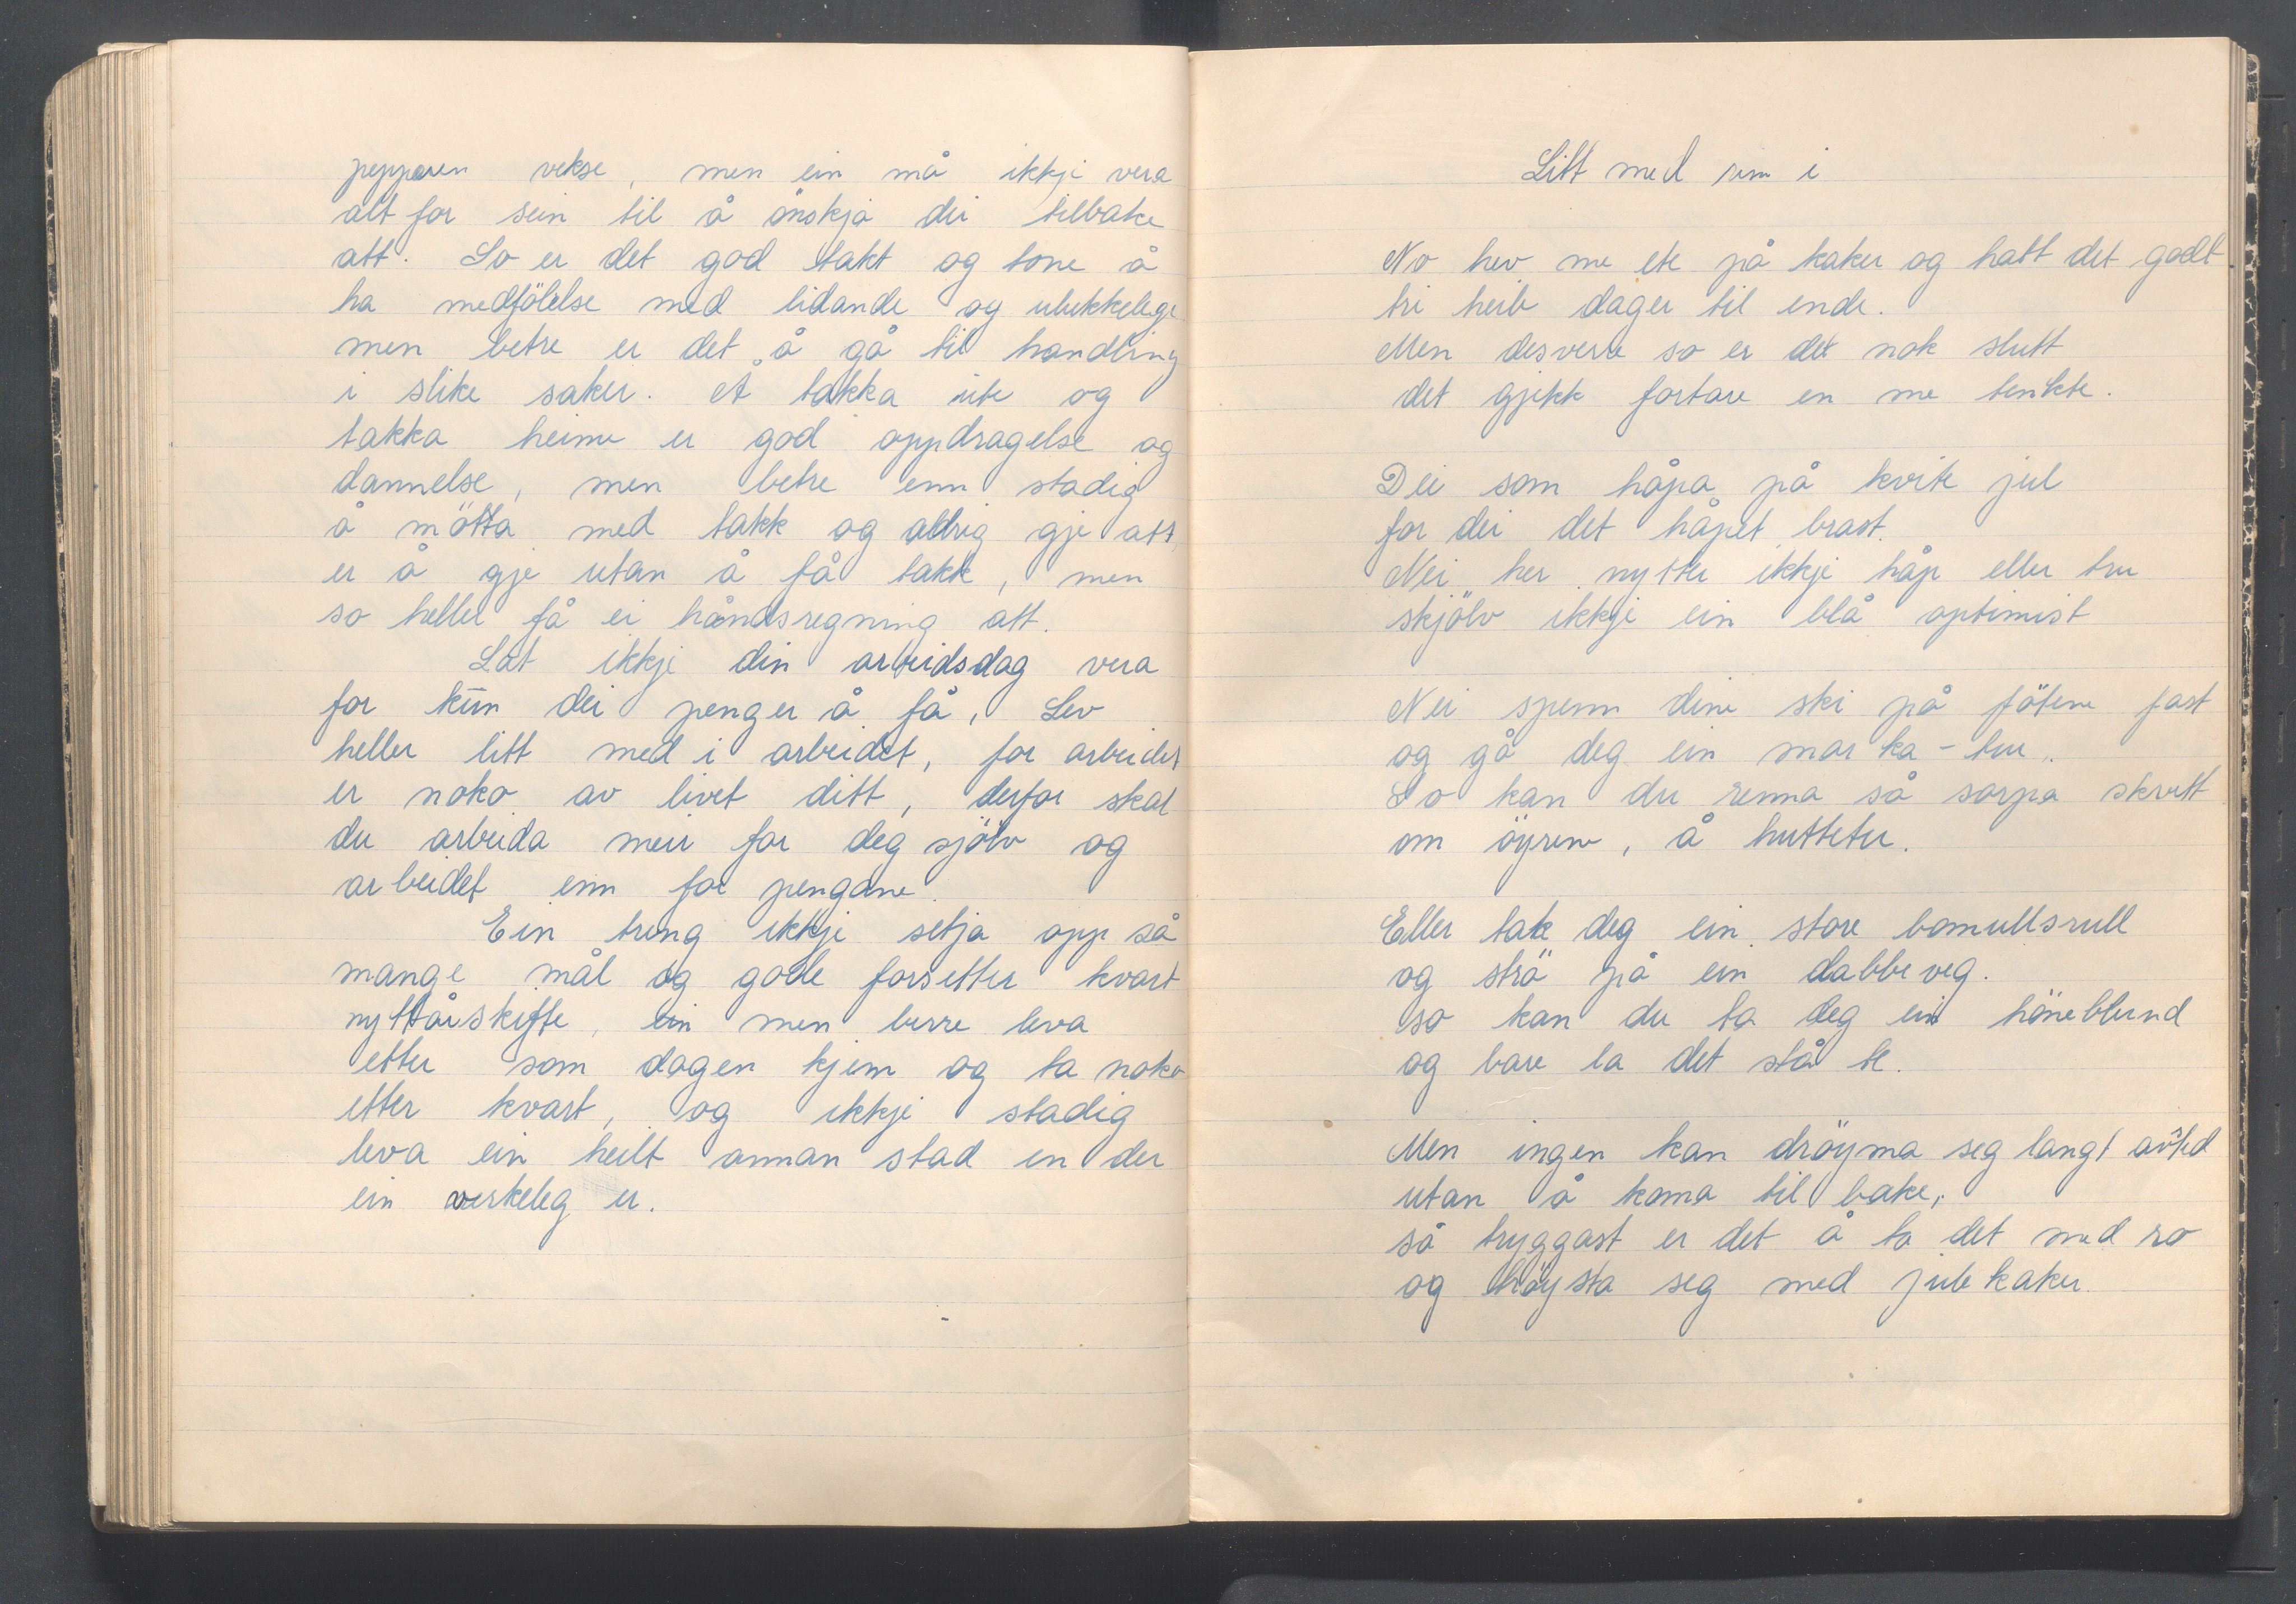 pepparen vekse, men ein må ikkje vera
alt for sein til å önskja dei tilbake
att. So er det god takt og tone å
ha medfölelse med lidande og ulukkelege
men betre er det å gå til handling
i slike saker. Å takka ute og
takka heime er god oppdragelse og
dannelse, men betre enn stadig
å mötta med takk og aldrig gje att,
er å gje utan å få takk, men
so heller få ei håndsregning att.
Lat ikkje din arbeidsdag vera
for kun dei penger å få, Lev
heller litt med i arbeidet, for arbeidet
er noko av livet ditt, derfor skal
du arbeida meir for deg sjölv og
arbeidet enn for pengane.
Ein treng ikkje setja opp så
mange mål og gode forsetter kvart
nyttårskifte, ein men berre leva
etter som dagen kjem og ta noko
etter kvart, og ikkje stadig
leva ein heilt annan stad en der
ein verkeleg er.
Litt med rim i
No hev me ete på kaker og hatt det godt
tri heile dager til ende.
Men desverre so er det nok slutt
det gjekk fortare en me tenkte.
Dei som håpa på kvite jul
for dei det håpet brast.
Nei her nytter ikkje håp eller tru
skjölv ikkje ein blå optimist
Nei spenn dine ski på fötene fast
og gå deg ein marka-tur.
So kan du renna så sørpa skvett
om öyrene, å huttetu.
Eller tak deg ein store bomullsrull
og strö på ein dabbeveg.
so kan du ta deg ein höneblund
og bare la det stå te.
Men ingen kan dröyma seg langt avsted
utan å koma til bake,
så tryggast er det å ta det med ro
og tröysta seg med julekaker.